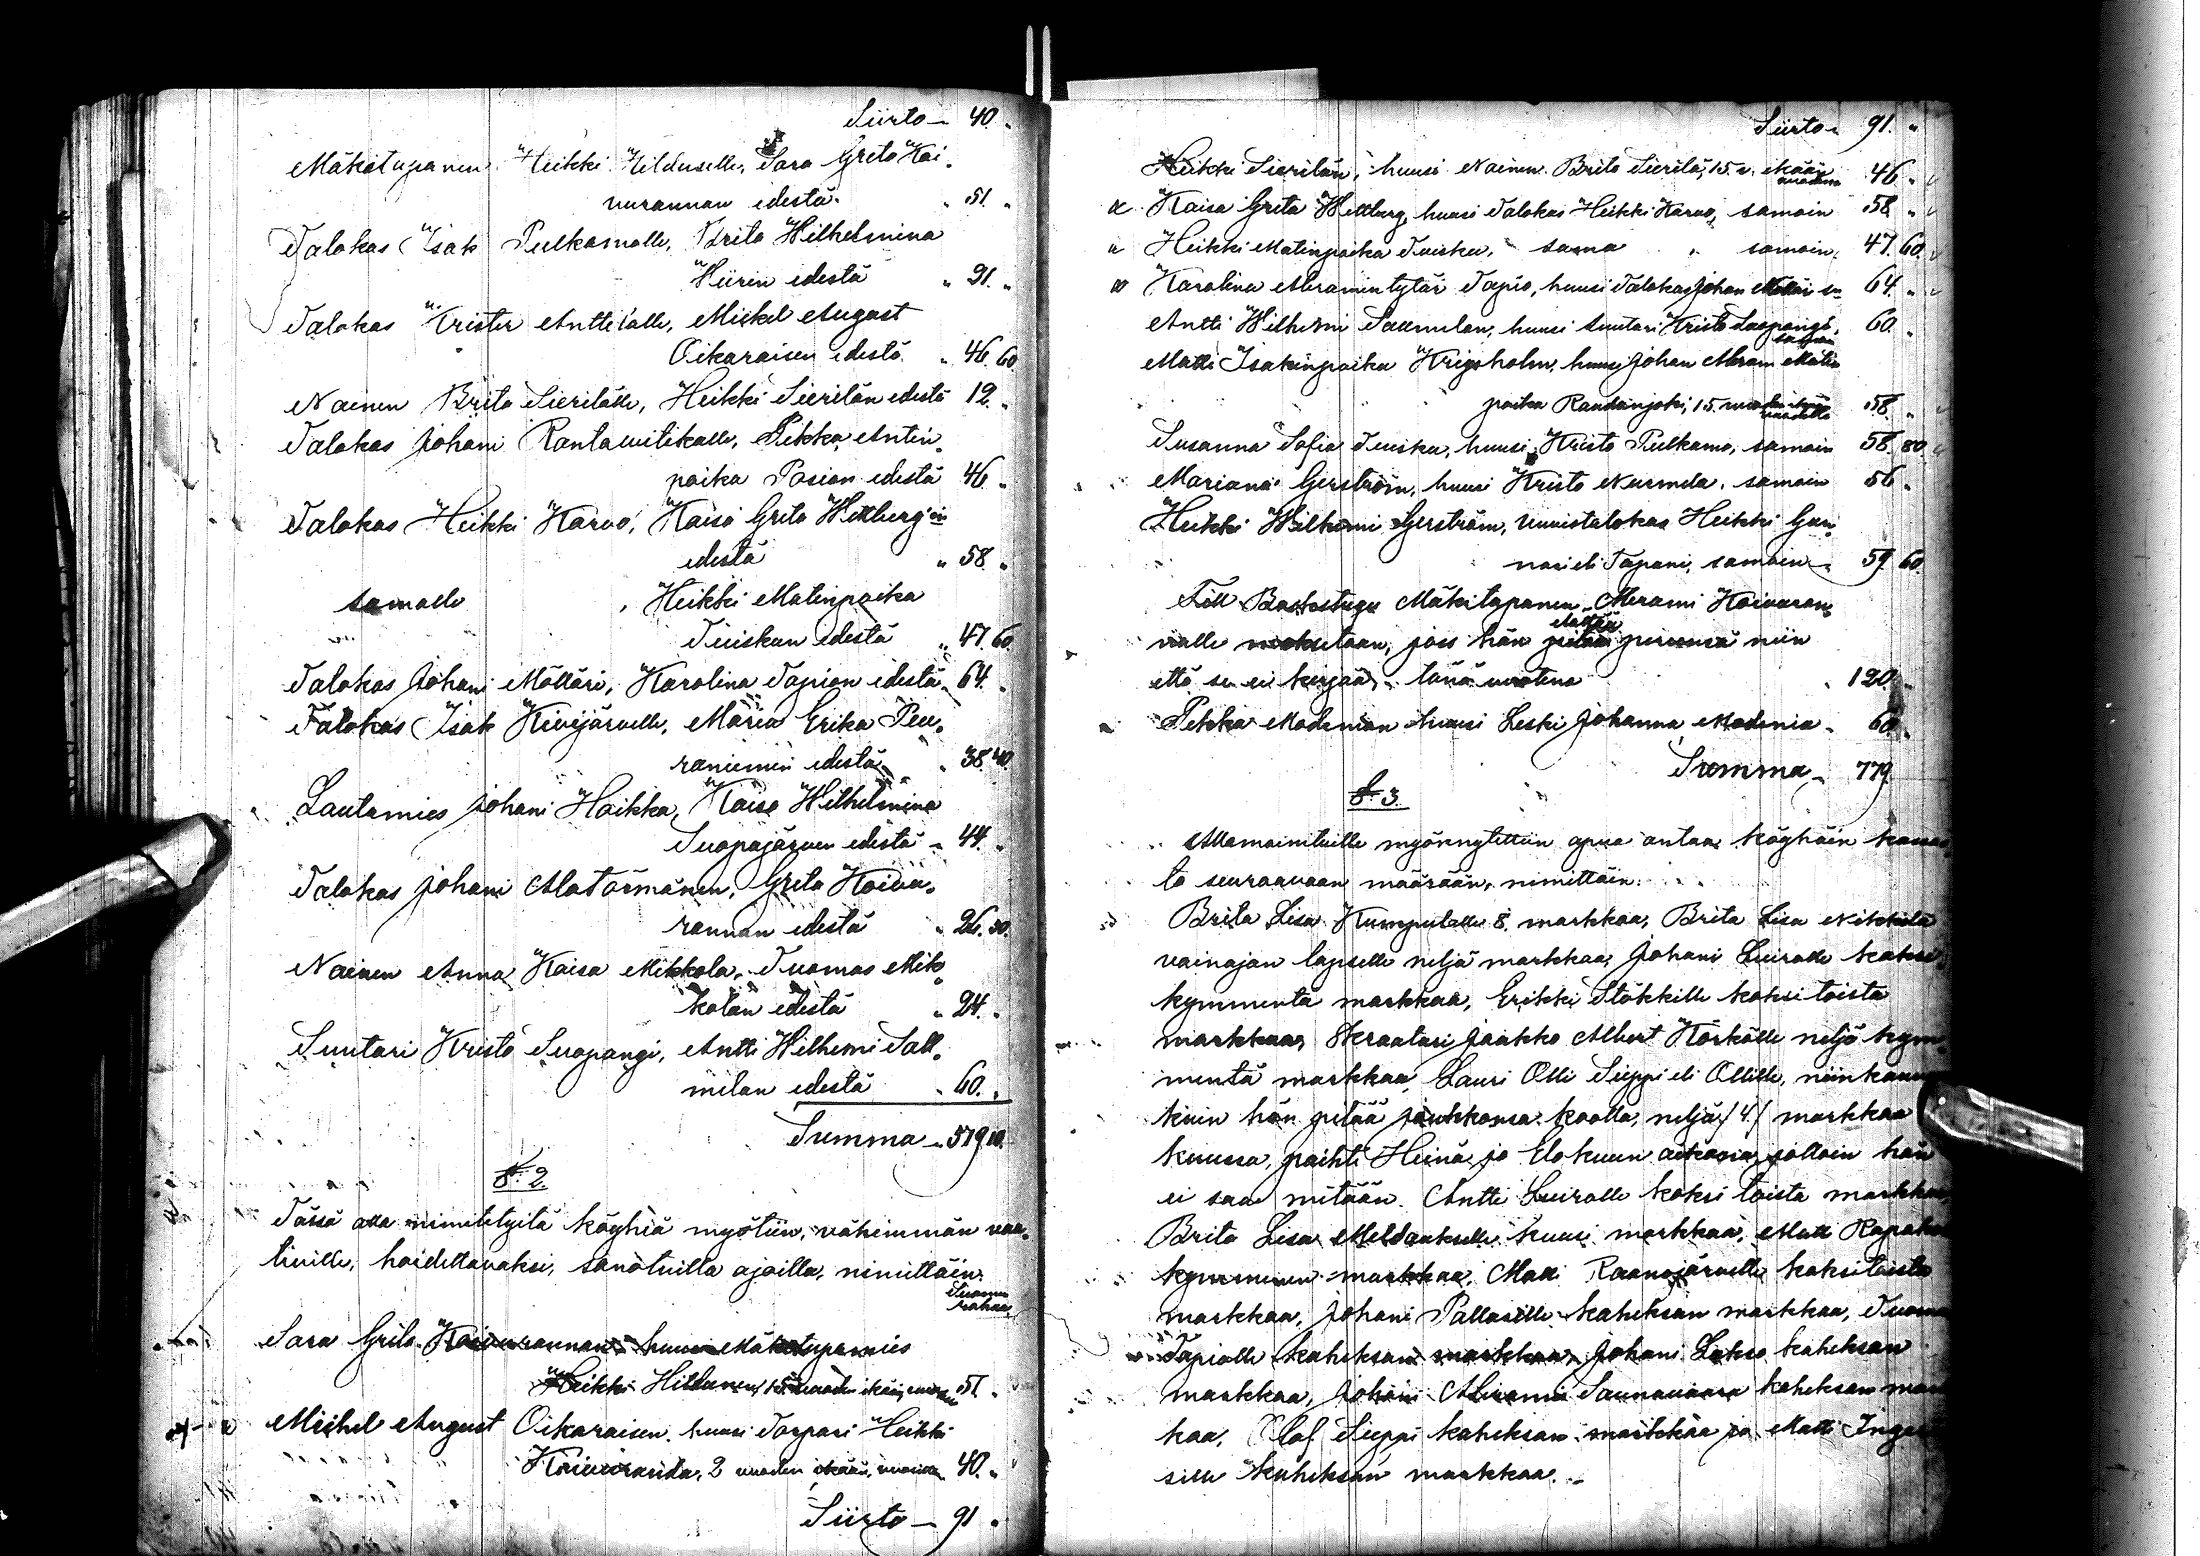 Siirto — 40. "
Mäkitupanen Heikki Hilduselle, Sara Greta Koi-
vurannan edestä " 51. "
Talokas Isak Pulkamolle, Brita Wilhelmina
Hiirin edestä " 21. "
Talokas Krister Anttilalle, Mickel August
Oikaraisen edestä " 46. 60
Nainen Brita Sierilälle, Heikki Sierilän edestä 12. "
Talokas Johani Rantavitikalle, Pekka Antin
poika Posion edestä 46. "
Talokas Heikki Karvo, Kaisa Greta Wettberg'in
edestä " 58. "
samalle , Heikki Matinpoika
Tuiskun edestä " 47. 60.
Talokas Johani Möttäri, Karolina Tapion edestä 64. "
Talokas Isak Kivijärvelle, Maria Erika Peu-
raniemen edestä " 38. 40.
Lautamies Johani Hoikka, Kaisa Wilhelmina
Suopajärven edestä " 44. "
Talokas Johani Alatörmänen, Greta Koivu-
rannan edestä " 26. 50.
Nainen Anna Kaisa Mikkola, Tuomas Mik-
kolan edestä " 24. "
Suutari Kristo Suopangi, Antti Wilhemi Sall-
milan edestä " 60. "
Summa " 579 10.
§ 2.
Tässä alla nimitetyitä köyhiä myötiin, vähemmän vaa-
tiville, hoidettavaksi, sanotuilla ajoilla, nimittäin:
Suomen
rahaa
Sara Greta Koivurannan huusi Mäkitupamies
Heikki Hildunen, 15 vuoden ikään, 51. "
Michel August Oikaraisen, huusi Torpari Heikki
Koivuranta, 2 vuoden ikään, 40. "
Siirto — 91 "
Siirto — 91. "
Heikki Sierilän, huusi Nainen Brita Sierilä, 15. v. ikään 46. "
Kaisa Greta Wettberg, huusi Talokas Heikki Karvo, samoin 58. "
Heikki Matinpoika Tuisku, sama " samoin, 47. 60.
Karolina Abramintytär Tapio, huusi Talokas Johan Möttäri 64. "
Antti Wilhemi Sallmilan, huusi Suutari Kristo Suopangi, 60. "
Matti Isakinpoika Krigsholm, huusi Johan Abram Matin
poika Raudanjoki, 15. 58. "
Susanna Sofia Tuisku, huusi Kristo Pulkamo, samoin 58. 80.
Mariana Gerström, huusi Kristo Nurmela, samoin 56. "
Heikki Wilhemi Gerström, Uunistalokas Heikki Gun-
nari eli Tapani, samoin " 59. 60.
Till Mäkitupanen Abrami Koivuran-
nalle maksetaan, joss hän elättää perensä niin
että se ei kerjää, tänä vuotena " 120. "
Pekka Modenian huusi Leski Johanna Modenia " 60. "
Summa — 779.
§ 3.
Allamainituille myönnytettiin apua antaa köyhäin kassas-
ta seuraavaan määrään, nimittäin:
Brita Lisa Kumpulalle 8. markkaa, Brita Lisa Nikkilä
vainajan lapselle neljä markkaa, Johani Luiralle kaksi-
kymmentä markkaa, Erikki Stökkille kaksi toista
markkaa, Skraatari Jaakko Albert Körkölle neljä kym-
mentä markkaa, Lauri Olli Sieppi eli Ollille, niinkauan
kuin hän pitää joukkonsa koolla, neljä /4/ markkaa
kuussa, paihti Heinä ja Elokuun aikana jolloin hän
ei saa mitään. Antti Luiralle kaksi toista markkaa
Brita Lisa Meldaukselle kuusi markkaa, Matt Kapaka
kymmenen markkaa, Matti Raanojärvelle kaksitoista
markkaa, Johani Pallarille kaheksan markkaa, Tuomas
Tapiolle kaheksan markkaa, Johani Lakso kaheksan
markkaa, Johani Abrami Saunavaara kaheksan mark-
kaa, Olof Sieppi kaheksan markkaa ja Matti
sille kaheksan markkaa. —